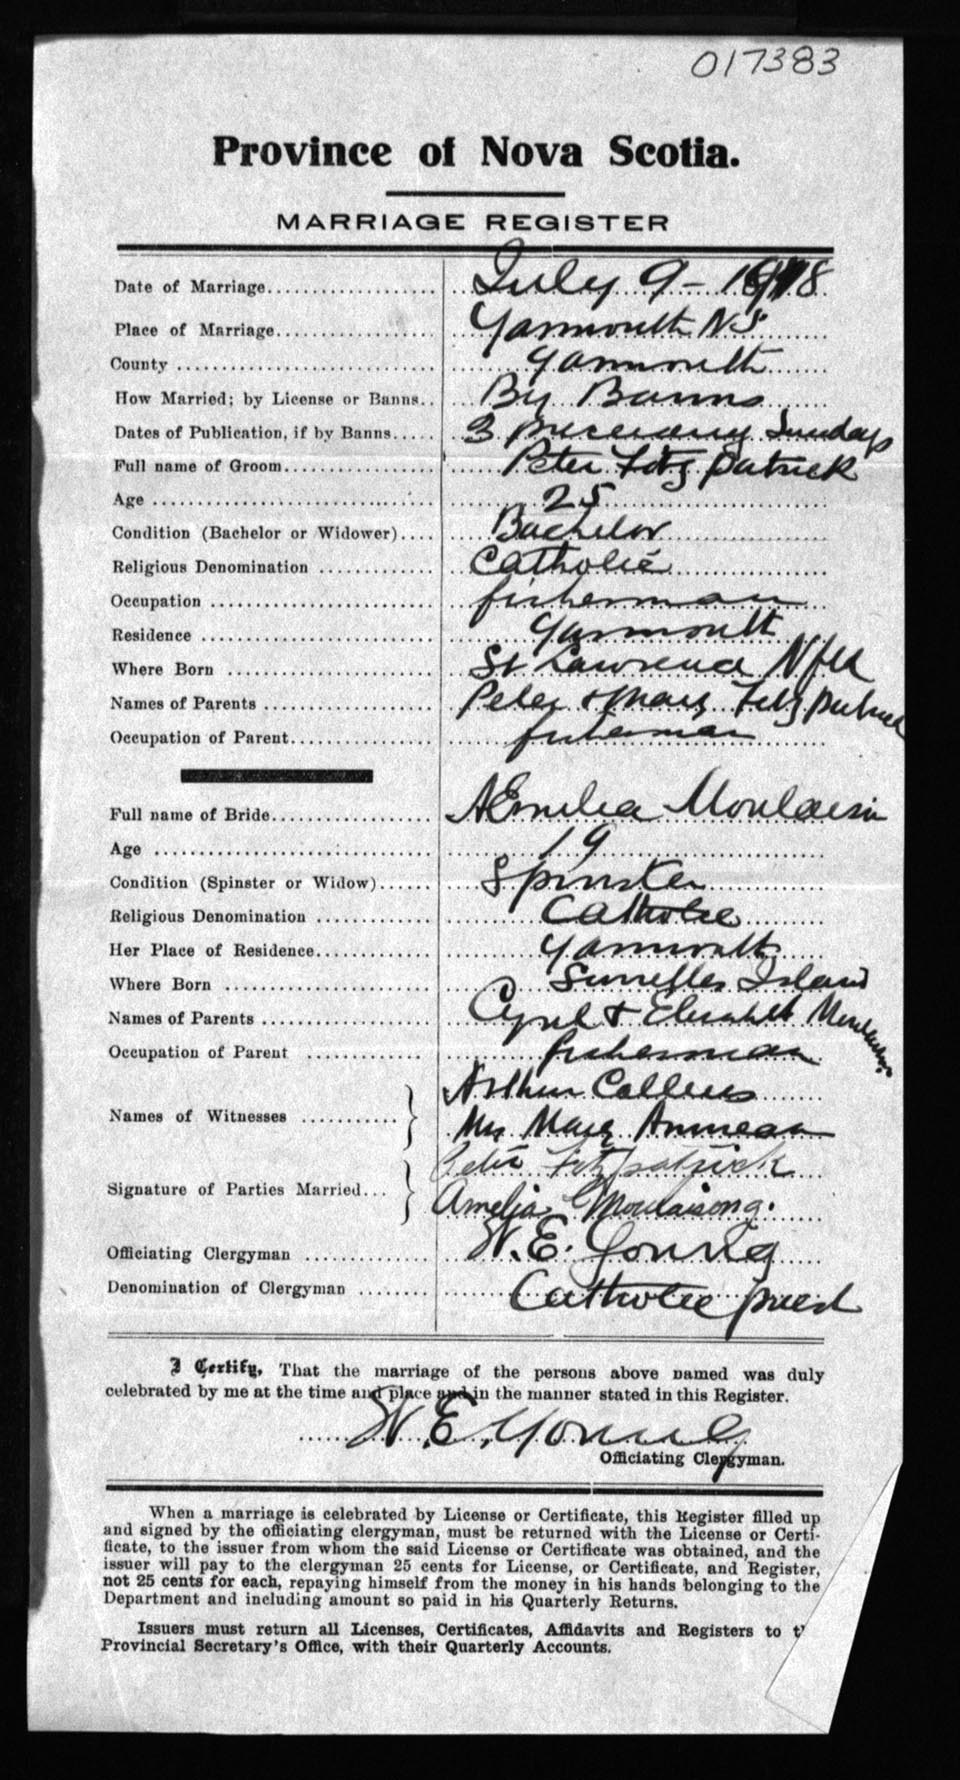 017383
Province of Nova Scotia.
MARRIAGE REGISTER
Date of Marriage.................... July 9 - 1918
Place of Marriage................... Yarmouth N S
County .............................. Yarmouth
How Married; by License or Banns.. By Banns
Dates of Publication, if by Banns..... 3 Sundays
Full name of Groom.................. Peter Fitz Patrick
Age ................................. 25
Condition (Bachelor or Widower).... Bachelor
Religious Denomination ............. Catholic
Occupation ......................... fisherman
Residence .......................... Yarmouth
Where Born ....................... St Lawrence Nfld
Names of Parents .................... Peter & Mary Fitz Patrick
Occupation of Parent................. fisherman
Full name of Bride................... AEmelia Moulaisin
Age ................................. 19
Condition (Spinster or Widow)...... Spinster
Religious Denomination ............. Catholic
Her Place of Residence.............. Yarmouth
Where Born ........................ Island
Names of Parents .................... Cyril & Elizabeth
Occupation of Parent .............. fisherman
Names of Witnesses ........... } Arthur Collins
Mrs Mary
Signature of Parties Married... } Peter Fitzpatrick
Amelia Moulaisong.
Officiating Clergyman .............. W. E. Young
Denomination of Clergyman ........ Catholic priest
I Certify, That the marriage of the persons above named was duly
celebrated by me at the time and place and in the manner stated in this Register.
W. E. Young
Officiating Clergyman.
When a marriage is celebrated by License or Certificate, this Register filled up
and signed by the officiating clergyman, must be returned with the License or Certi-
ficate, to the issuer from whom the said License or Certificate was obtained, and the
issuer will pay to the clergyman 25 cents for License, or Certificate, and Register,
not 25 cents for each, repaying himself from the money in his hands belonging to the
Department and including amount so paid in his Quarterly Returns.
Issuers must return all Licenses, Certificates, Affidavits and Registers to
Provincial Secretary's Office, with their Quarterly Accounts.